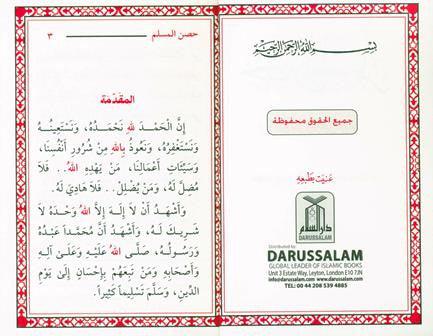 بِسْمِ اللَّهِ الرَّحْمَنِ الرَّحِيمِ
جميع الحقوق محفوظة
عنيت بطبعه
دار السلام
DARUSSALAM
Distributed by:
DARUSSALAM
GLOBAL LEADER OF ISLAMIC BOOKS
Unit 3 Estate Way, Leyton, London E10 7JN
info@darussalam.com www.darussalam.com
TEL: 00 44 208 539 4885
حصن المسلم ٣
المقدّمة
إِنَّ الْحَمْـدَ للهِ نَحْمَـدُهُ، وَنَسْتَعِينُـهُ
وَنَسْتَغْفِرُهُ، وَنَعُوذُ بِاللهِ مِنْ شُرُورِ أَنْفُسِنَا،
وَسَيِّئَاتِ أَعْمَالِنَا، مَنْ يَهْدِهِ اللهُ.. فَلَا
مُضِلَّ لَهُ، وَمَنْ يُضْلِلْ.. فَلَا هَادِيَ لَهُ.
وَأَشْهَدُ أَنْ لَا إِلَـهَ إِلَّا اللهُ وَحْدَهُ لَا
شَرِيكَ لَهُ، وَأَشْهَدُ أَنَّ مُحَمَّداً عَبْدُهُ
وَرَسُولُهُ، صَلَّى اللهُ عَلَيْهِ وَعَلَىٰ آلِهِ
وَأَصْحَابِهِ وَمَنْ تَبِعَهُمْ بِإِحْسَانٍ إِلَىٰ يَوْمِ
الدِّينِ، وَسَلَّمَ تَسْلِيماً كَثِيراً.